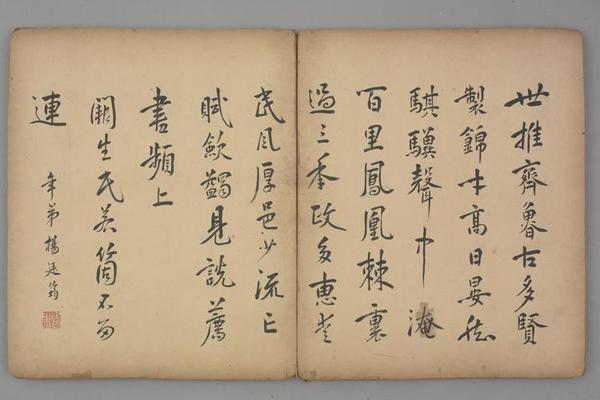 世推齊魯古多賢
製錦才高日晏然
騏驥聲中淹
百里鳳凰棘裏
過三秊政多惠愛
民風厚邑少流亡
賦歛蠲見說薦
書頻上
闕生民若箇不留
連
年弟楊廷筠